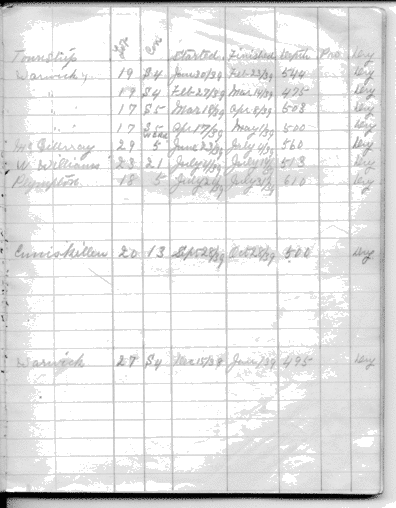 Township Lot Con Started Finished Depth Pro Dry
Warwick 19 S4 Jan 20/39 Feb 23/39 544 Dry
" 19 S4 Feb 27/39 Mar 14/39 495 Dry
" 17 S5 Mar 18/39 Apr 8/39 508 Dry
" 17 Apr 17/39 May 1/39 500 Dry
Mc Gillivray 29 5 June 23/39 July 4/39 560 Dry
W. Williams 23 21 July 513 Dry
Plympton 18 5 July 610 Dry
Enniskillen 20 13 Sept 28/39 Oct 28/39 500 Dry
Warwick 27 S4 Mar 15/39 June 1/39 495 Dry